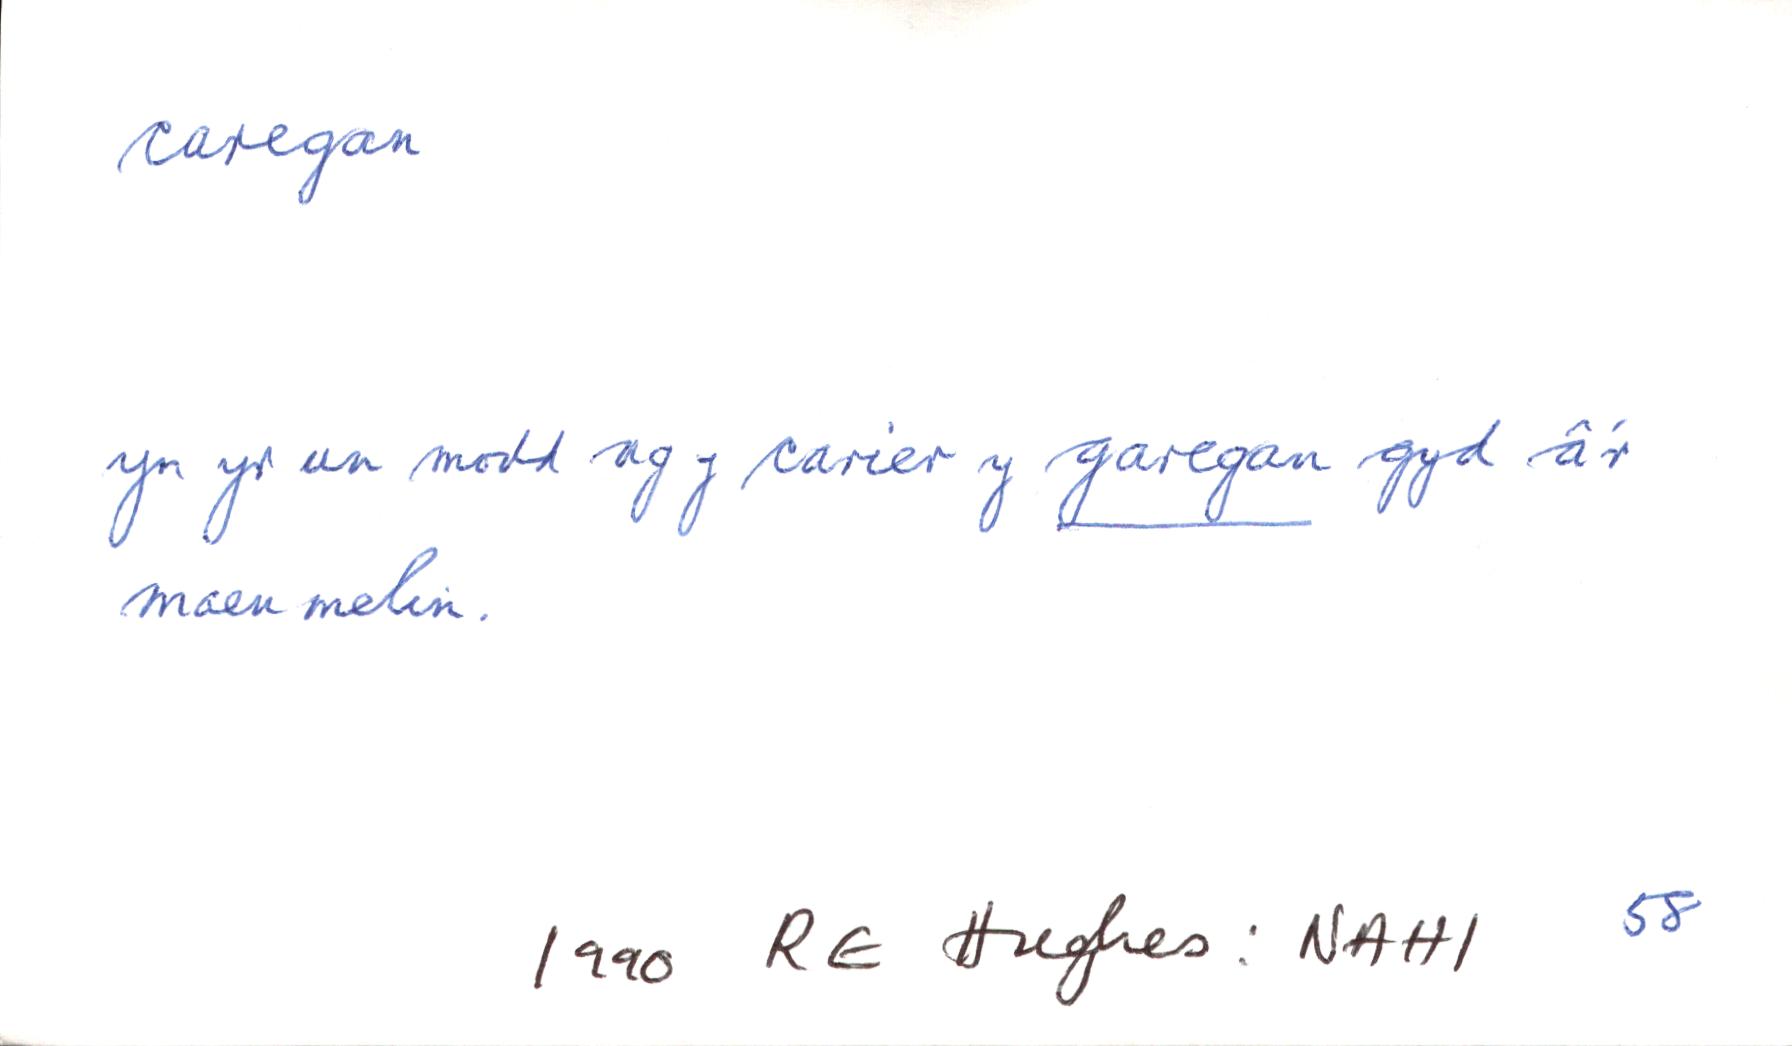 caregan
yn yr un modd ag y carier y garegan gyd â'r
maen melin.
58
1990 RE Hughes: NAHI